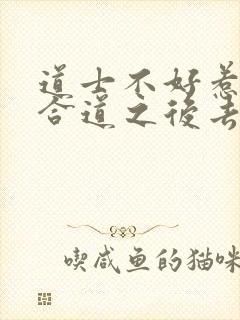 道士不好惹
合道之後去
喫咸鱼的猫咪